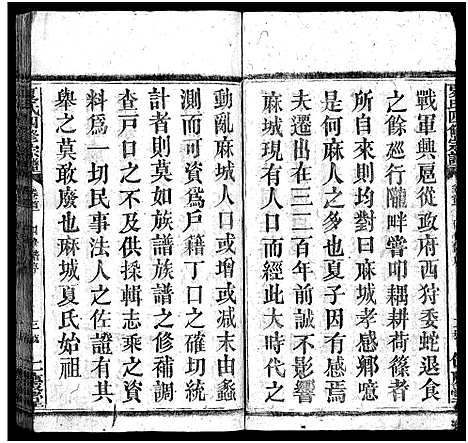 戰軍興扈從政府西狩委蛇退食
之餘巡行隴畔嘗叩耦耕荷篠者
所自來則均對曰麻城孝感鄉噫
是何麻人之多也夏子因有感焉
夫遷出在三二百年前誠不影響
麻城現有人口而經此大時代之
動亂麻城人口或增或减末由蠡
測而可資爲戶籍丁口之確切統
計者則諸族如族譜之修補調
查戶口之不及供採輯志乘之資
料爲一切民事法人之佐證者譜
舉之莫敢廢也麻城夏氏始祖
夏氏四修家譜